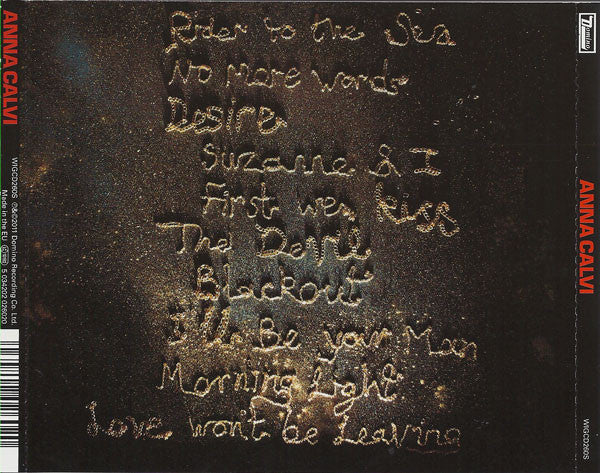 Rider to the Sea
No More Words
Desire
Suzanne & I
First we Kiss
The Devil
Blackout
I'll Be your Man
Morning Light
Love won't be Leaving
ANNA CALVI
WIGCD260S ℗&©2011 Domino Recording Co. Ltd.
Made in the EU 5 034202 026020
Domino
ANNA CALVI
WIGCD260S